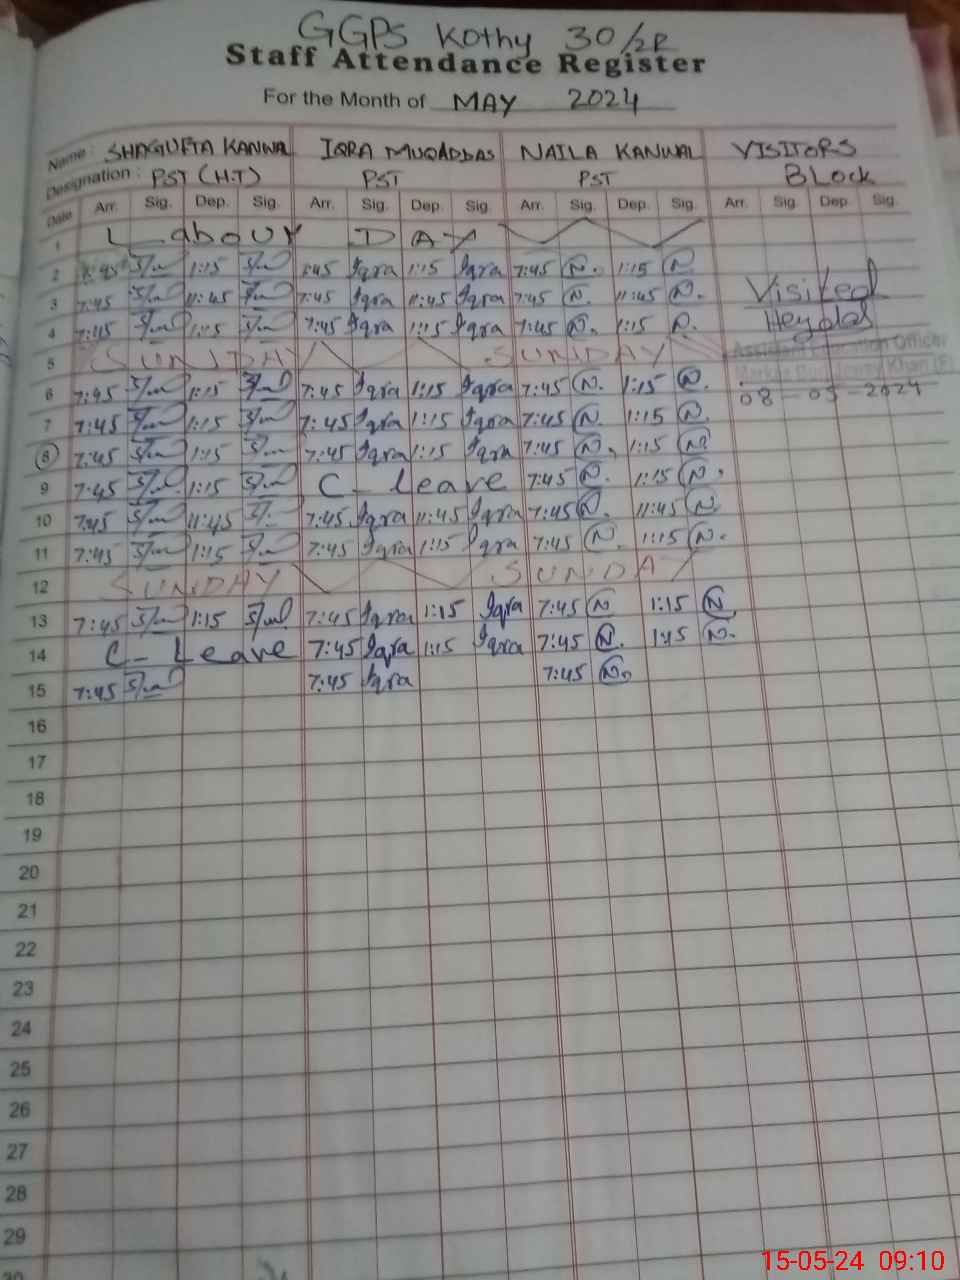 GGPS Kothy 30/2R
Staff Attendance Register
For the Month of MAY 2024
Name: SHAGUFTA KANWAL IQRA MUQADDAS NAILA KANWAL VISITORS
Designation: PST (H.T) PST PST BLock
Date Arr. Sig. Dep. Sig. Arr. Sig. Dep. Sig. Arr. Sig. Dep. Sig. Arr. Sig. Dep. Sig.
1 Labour DAY
2 7:45 1:15 7:45 Iqra 1:15 Iqra 7:45 N. 1:15 N.
3 7:45 11:45 7:45 Iqra 11:45 Iqra 7:45 N. 11:45 N. Visited
4 7:45 1:15 7:45 Iqra 1:15 Iqra 7:45 N. 1:15 N.
5 SUNDAY SUNDAY Assistant Education Officer
6 7:45 1:15 7:45 Iqra 1:15 Iqra 7:45 N. 1:15 N. Khan (F)
7 7:45 1:15 7:45 Iqra 1:15 Iqra 7:45 N. 1:15 N. 08-05-2024
8 7:45 1:15 7:45 Iqra 1:15 Iqra 7:45 N. 1:15 N.
9 7:45 1:15 C-Leave 7:45 N. 1:15 N.
10 7:45 11:45 7:45 Iqra 11:45 Iqra 7:45 N. 11:45 N.
11 7:45 1:15 7:45 Iqra 1:15 Iqra 7:45 N. 1:15 N.
12 SUNDAY SUNDAY
13 7:45 1:15 7:45 Iqra 1:15 Iqra 7:45 N 1:15 N.
14 C-Leave 7:45 Iqra 1:15 Iqra 7:45 N. 1:15 N.
15 7:45 7:45 Iqra 7:45 N.
16
17
18
19
20
21
22
23
24
25
26
27
28
29
30
15-05-24 09:10